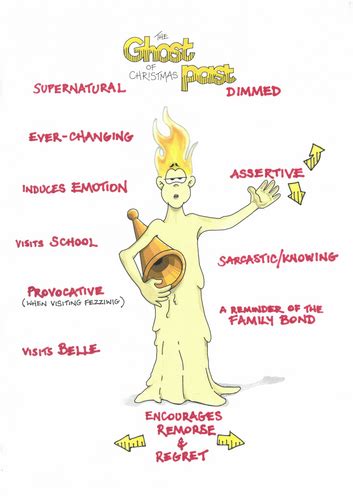 THE
Ghost
OF
CHRISTMAS past
SUPERNATURAL
DIMMED
EVER-CHANGING
ASSERTIVE
INDUCES EMOTION
VISITS SCHOOL
SARCASTIC/KNOWING
PROVOCATIVE
(WHEN VISITING FEZZIWIG)
A REMINDER OF THE
FAMILY BOND
VISITS BELLE
ENCOURAGES
REMORSE
&
REGRET